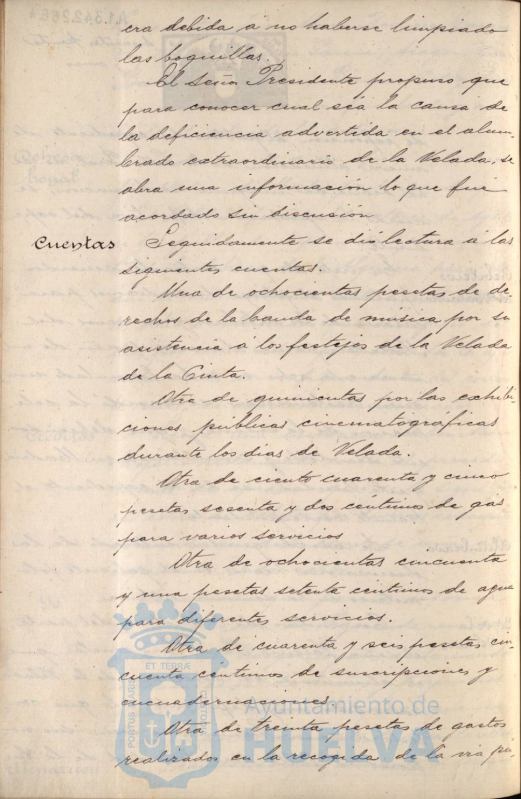 era debida á no haberse limpiado
las boquillas.
El Señor Presidente propuso que
para conocer cual sea la causa de
la deficiencia advertida en el alum-
brado extraordinario de la Velada, se
abra una información lo que fué
acordado sin discusión
Cuentas Seguidamente se dió lectura á las
siguientes cuentas.
Una de ochocientas pesetas de de
rechos de la banda de música por su
asistencia á los festejos de la Velada
de la Cinta.
Otra de quinientas por las exhibi-
ciones públicas cinematográficas
durante los dias de Velada.
Otra de ciento cuarenta y cinco
pesetas sesenta y dos céntimos de gas
para varios servicios
Otra de ochocientas cincuenta
y una pesetas setenta centimos de agua
para diferentes servicios.
Otra de cuarenta y seis pesetas cin-
cuenta céntimos de suscripciones y
encuadernaciones
Otra de treinta pesetas de gastos
realizados en la recogida de la via pú-
PORTUS MARIS ET TERRÆ CUSTODIA
Ayuntamiento de
HUELVA